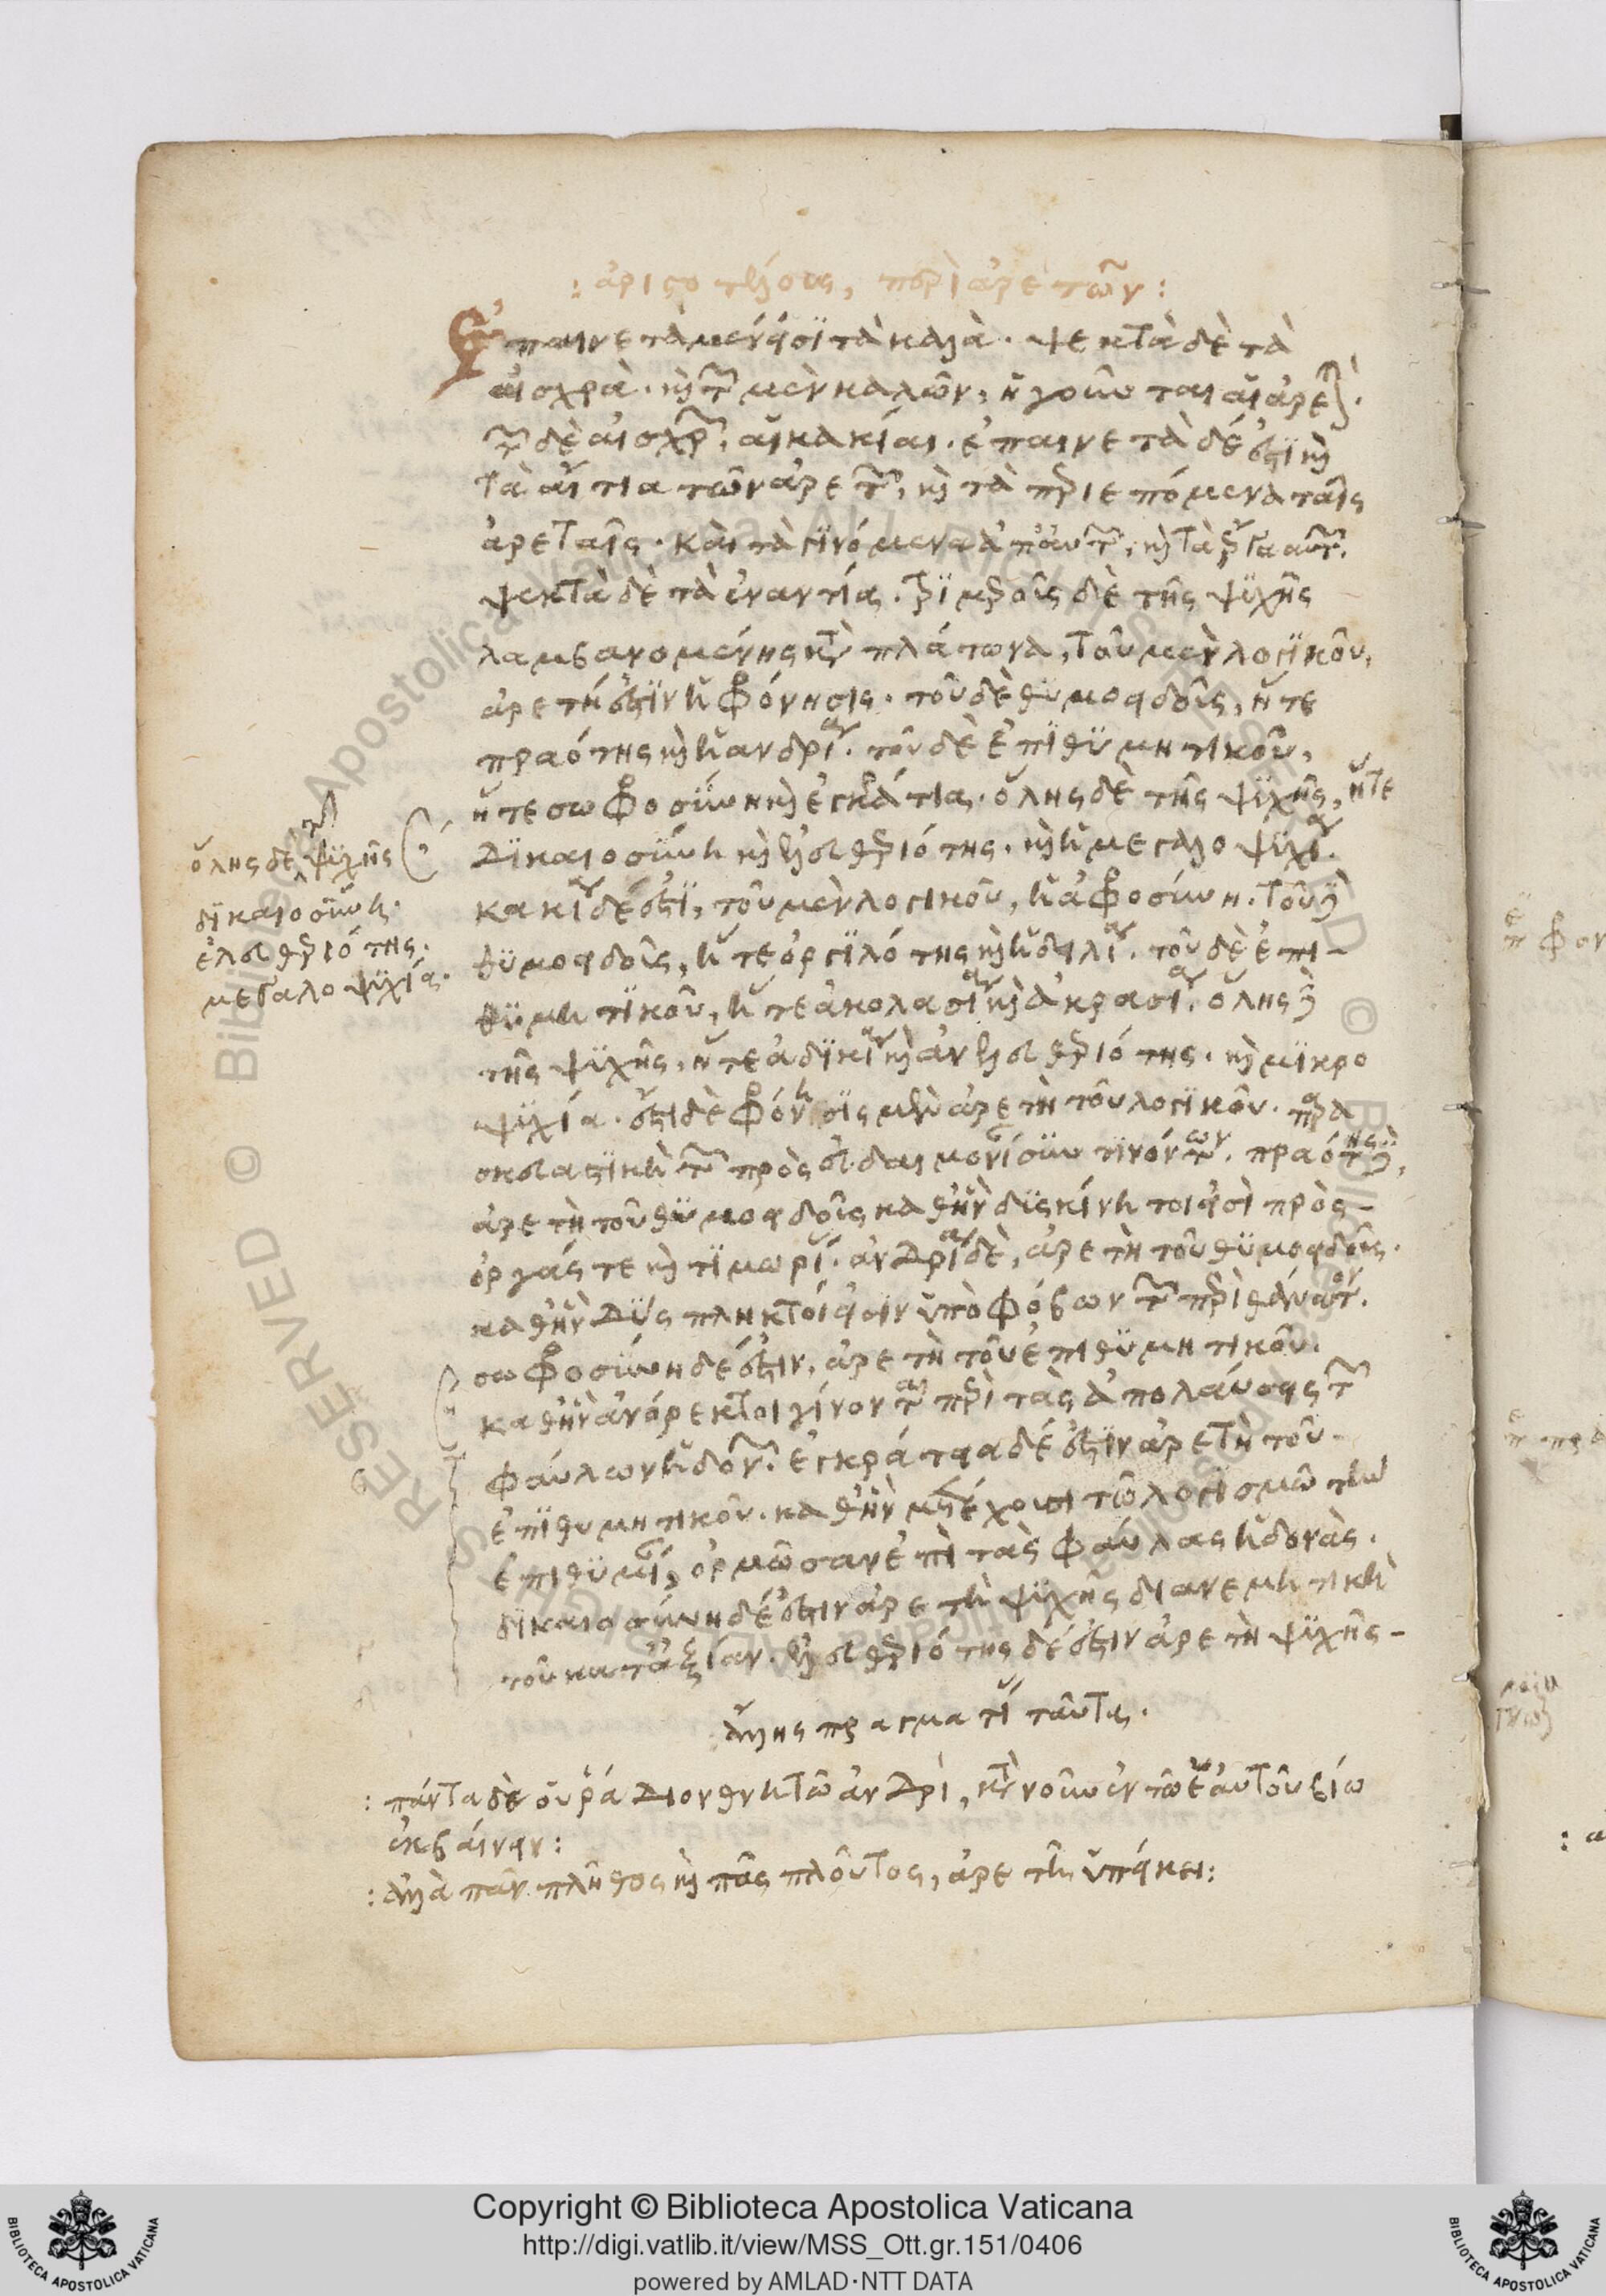 : ἀριστοτέλους, περὶ ἀρετῶν :
Ἐπαινετὰ μέν εἰσι τὰ καλὰ. ψεκτὰ δὲ τὰ
αἰσχρὰ. καὶ τῶν μὲν καλῶν, ἡγοῦνται αἱ ἀρεταί.
τῶν δὲ αἰσχρῶν, αἱ κακίαι. ἐπαινετὰ δέ ἐστι καὶ
τὰ αἴτια τῶν ἀρετῶν, καὶ τὰ παρεπόμενα ταῖς
ἀρεταῖς. καὶ τὰ γινόμενα ἀπ' αὐτῶν, καὶ τὰ ἔργα αὐτῶν.
ψεκτὰ δὲ τὰ ἐναντία. τριμεροῦς δὲ τῆς ψυχῆς
λαμβανομένης κατὰ πλάτωνα, τοῦ μὲν λογικοῦ,
ἀρετή ἐστιν ἡ φρόνησις. τοῦ δὲ θυμοειδοῦς, ἥ τε
πραότης καὶ ἡ ἀνδρία. τοῦ δὲ ἐπιθυμητικοῦ,
ἥ τε σωφροσύνη καὶ ἐγκράτια. ὅλης δὲ τῆς ψυχῆς, ἥ τε
δικαιοσύνη καὶ ἐλευθεριότης. καὶ ἡ μεγαλοψυχία.
κακία δέ ἐστι, τοῦ μὲν λογικοῦ, ἡ ἀφροσύνη. τοῦ δὲ
θυμοειδοῦς, ἥ τε ὀργιλότης καὶ ἡ δειλία. τοῦ δὲ ἐπι-
θυμητικοῦ, ἥ τε ἀκολασία καὶ ἀκρασία. ὅλης δὲ
τῆς ψυχῆς, ἥ τε ἀδικία καὶ ἀνελευθεριότης. καὶ μικρο
ψυχία. ἔστι δὲ φρόνησις μὲν ἀρετὴ τοῦ λογικοῦ. παρα
σκευαστικὴ τῶν πρὸς εὐδαιμονίαν συντεινόντων. πραότης δὲ,
ἀρετὴ τοῦ θυμοειδοῦς καθ' ἣν δυσκίνητοί εἰσι πρὸς
ὀργάς τε καὶ τιμωρίας. ἀνδρία δὲ, ἀρετὴ τοῦ θυμοειδοῦς.
καθ' ἣν δύσπληκτοί εἰσιν ὑπὸ φόβων τῶν περὶ θάνατον.
σωφροσύνη δέ ἐστιν, ἀρετὴ τοῦ ἐπιθυμητικοῦ.
καθ' ἣν ἀνόρεκτοι γίνονται περὶ τὰς ἀπολαύσεις τῶν
φαύλων ἡδονῶν. ἐγκράτεια δέ ἐστιν ἀρετὴ τοῦ
ἐπιθυμητικοῦ. καθ' ἣν κατέχουσι τῷ λογισμῷ τὴν
ἐπιθυμίαν, ὁρμῶσαν ἐπὶ τὰς φαύλας ἡδονάς.
δικαιοσύνη δέ ἐστιν ἀρετὴ ψυχῆς διανεμητικὴ
τοῦ κατ' ἀξίαν. ἐλευθεριότης δέ ἐστιν ἀρετὴ ψυχῆς
ὅλης δὲ τῆς ψυχῆς
δικαιοσύνη.
ἐλευθεριότης.
μεγαλοψυχία.
ἄλλης πραγματείας ταῦτα.
: πάντα δὲ οὐ ῥάδιον θνητῷ ἀνδρὶ, κατὰ νοῦν ἐν τῷ ἑαυτοῦ βίῳ
ἐκβαίνειν :
: ἀλλὰ πᾶν πλῆθος καὶ πᾶς πλοῦτος, ἀρετῇ ὑπείκει :
Copyright © Biblioteca Apostolica Vaticana
http://digi.vatlib.it/view/MSS_Ott.gr.151/0406
powered by AMLAD·NTT DATA